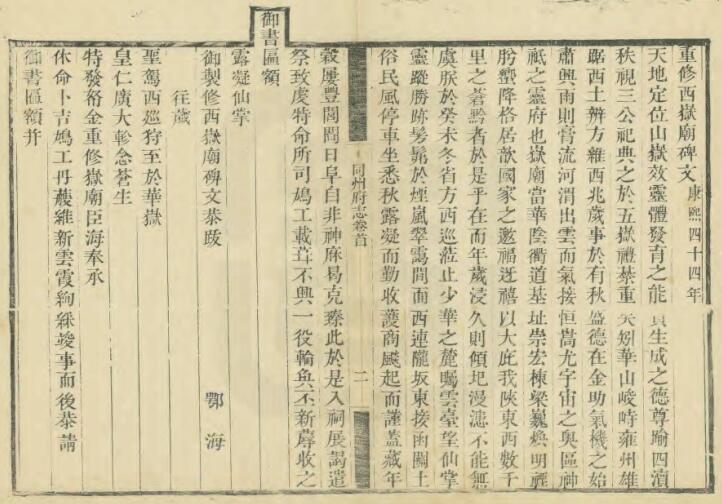 重修西嶽廟碑文 康熙四十四年
天地定位山嶽效靈體發育之能贊生成之德尊踰四瀆
秩視三公祀典之於五嶽禮綦重矣矧華山峻峙雍州雄
踞西土辨方雜西兆歲事於有秋盛德在金助氣機之始
肅興雨則膏流河渭出雲而氣接恒嵩尤宇宙之奧區神
祇之靈府也嶽廟當華陰衝道基址崇宏棟梁巍煥明禋
肹蠁降格居歆國家之邀福迓禧以大庇我陝東西數千
里之蒼黔者於是乎在而年歲浸久則傾圯漫漶不能無
虞朕於癸未冬省方西巡蒞止少華之麓矚雲臺望仙掌
靈蹤勝跡髣髴於煙嵐翠靄間而西連隴坂東接函關土
俗民風停車坐悉秋露凝而勤收穫商飈起而謹蓋藏年
同州府志卷首
二
穀屢豐閭閻日阜自非神庥易克臻此於是入祠展謁遣
祭致虔特命所司鳩工載葺不興一役輪奐丕新蓐收之
御書匾額
露凝仙掌
御製修西嶽廟碑文恭跋 鄂海
往歲
聖駕西巡狩至於華嶽
皇仁廣大軫念蒼生
特發帑金重修嶽廟臣海奉承
休命卜吉鳩工丹艧維新雲霞絢綵竣事而後恭請
御書匾額并